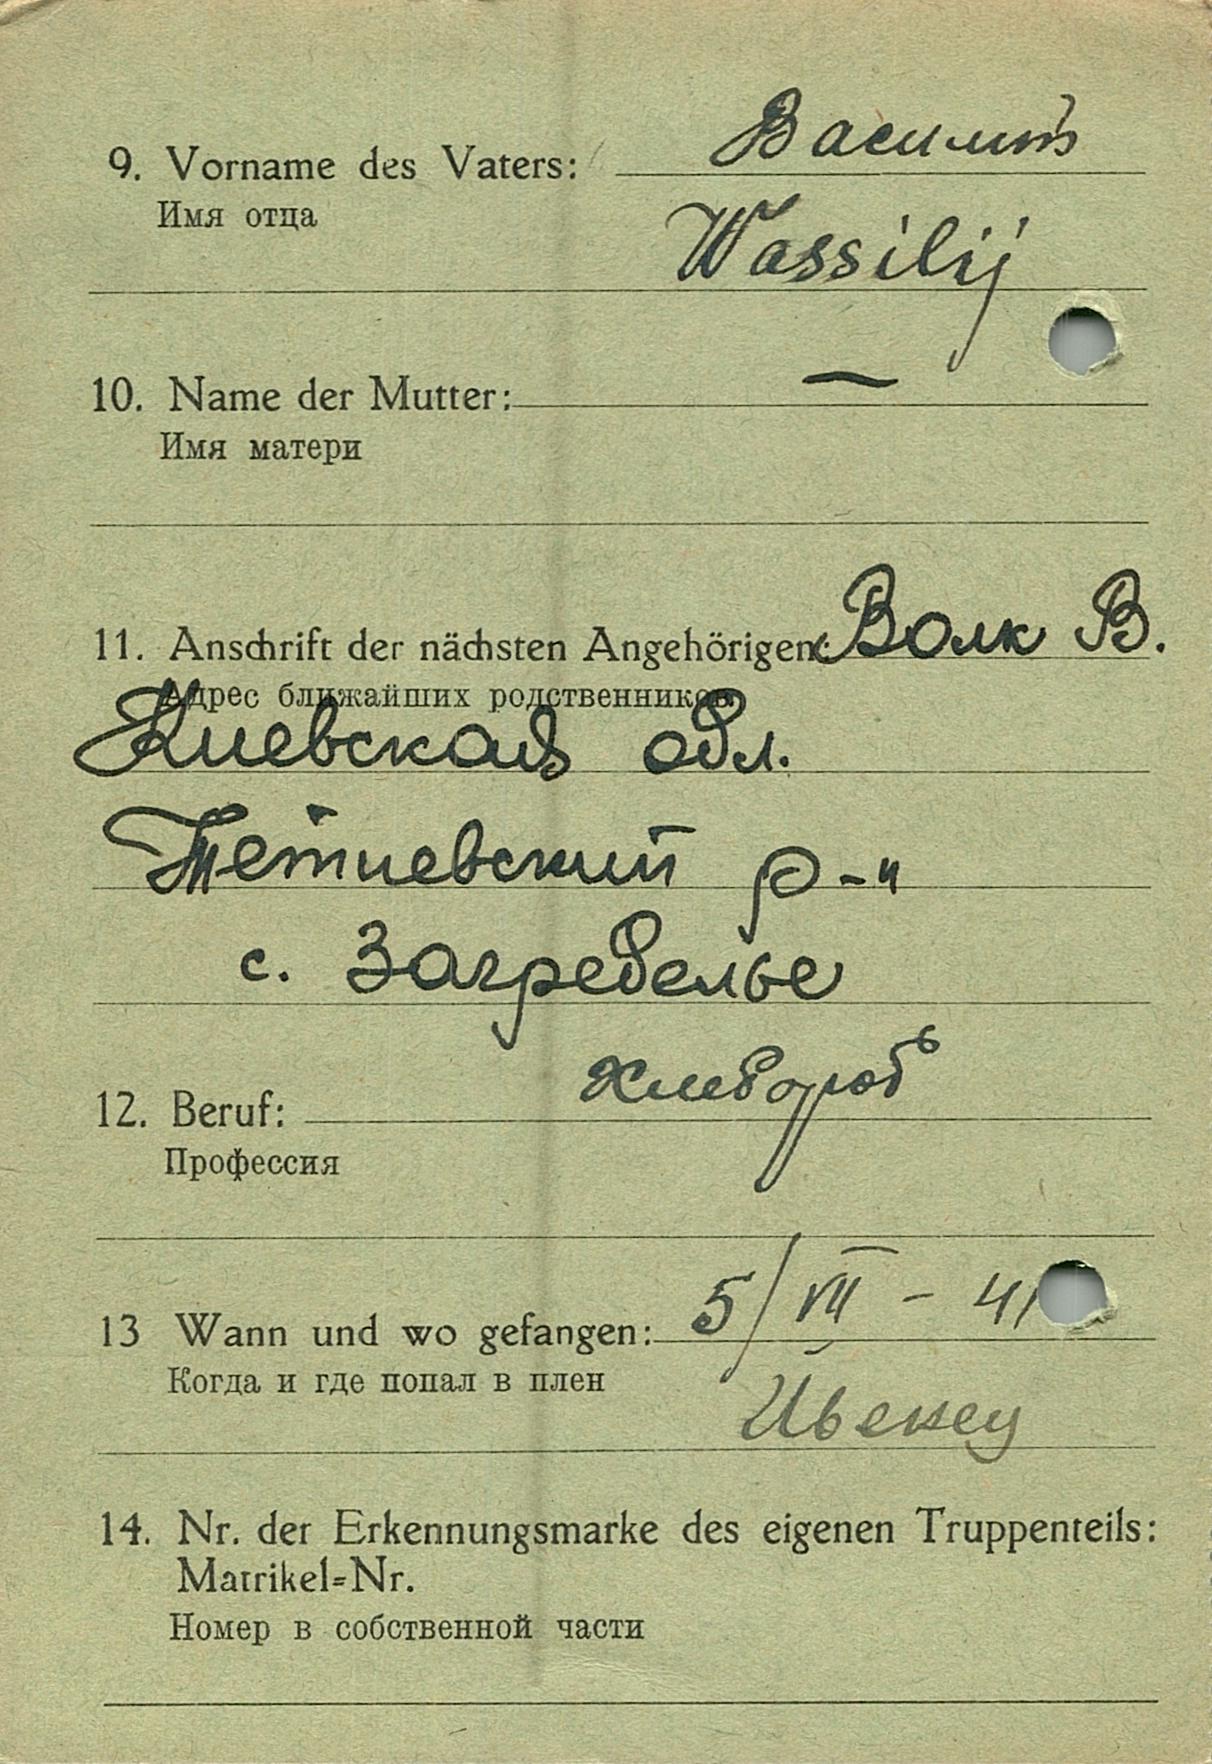 Василий
9. Vorname des Vaters:
Имя отца
Wassilij
10. Name der Mutter: —
Имя матери
11. Anschrift der nächsten Angehörigen: Волк В.
Адрес ближайших родственников
Киевская обл.
Тетиевский р-н
с. Загребелье
хлебороб
12. Beruf:
Профессия
13 Wann und wo gefangen: 5/VII - 41
Когда и где попал в плен
14. Nr. der Erkennungsmarke des eigenen Truppenteils:
Matrikel=Nr.
Номер в собственной части